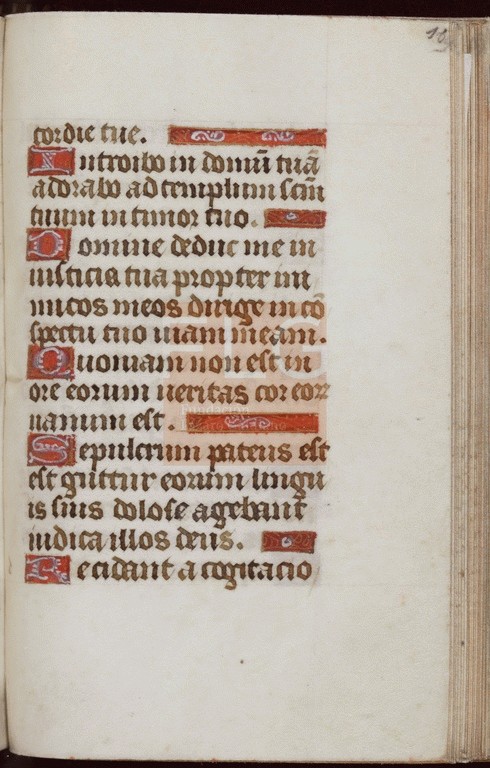 10
cordie tue.
Introibo in domū tuā
adorabo ad templum scm̄
tuum in timor tuo.
Domine deduc me in
iusticia tua propter ini
micos meos dirige in cō
spectu tuo uiam meam.
Quoniam non est in
ore eorum ueritas cor eoꝝ
uanum est.
Sepulcrum patens est
est guttur eorum lingu
is suis dolose agebant
iudica illos deus.
Decidant a cogitacio